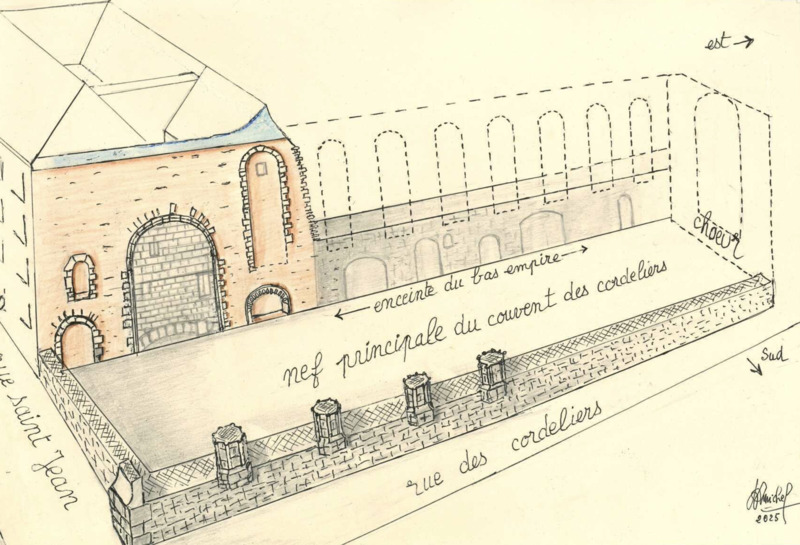 est
chœur
enceinte du bas empire
nef principale du couvent des cordeliers
Sud
rue saint Jean
rue des cordeliers
2025